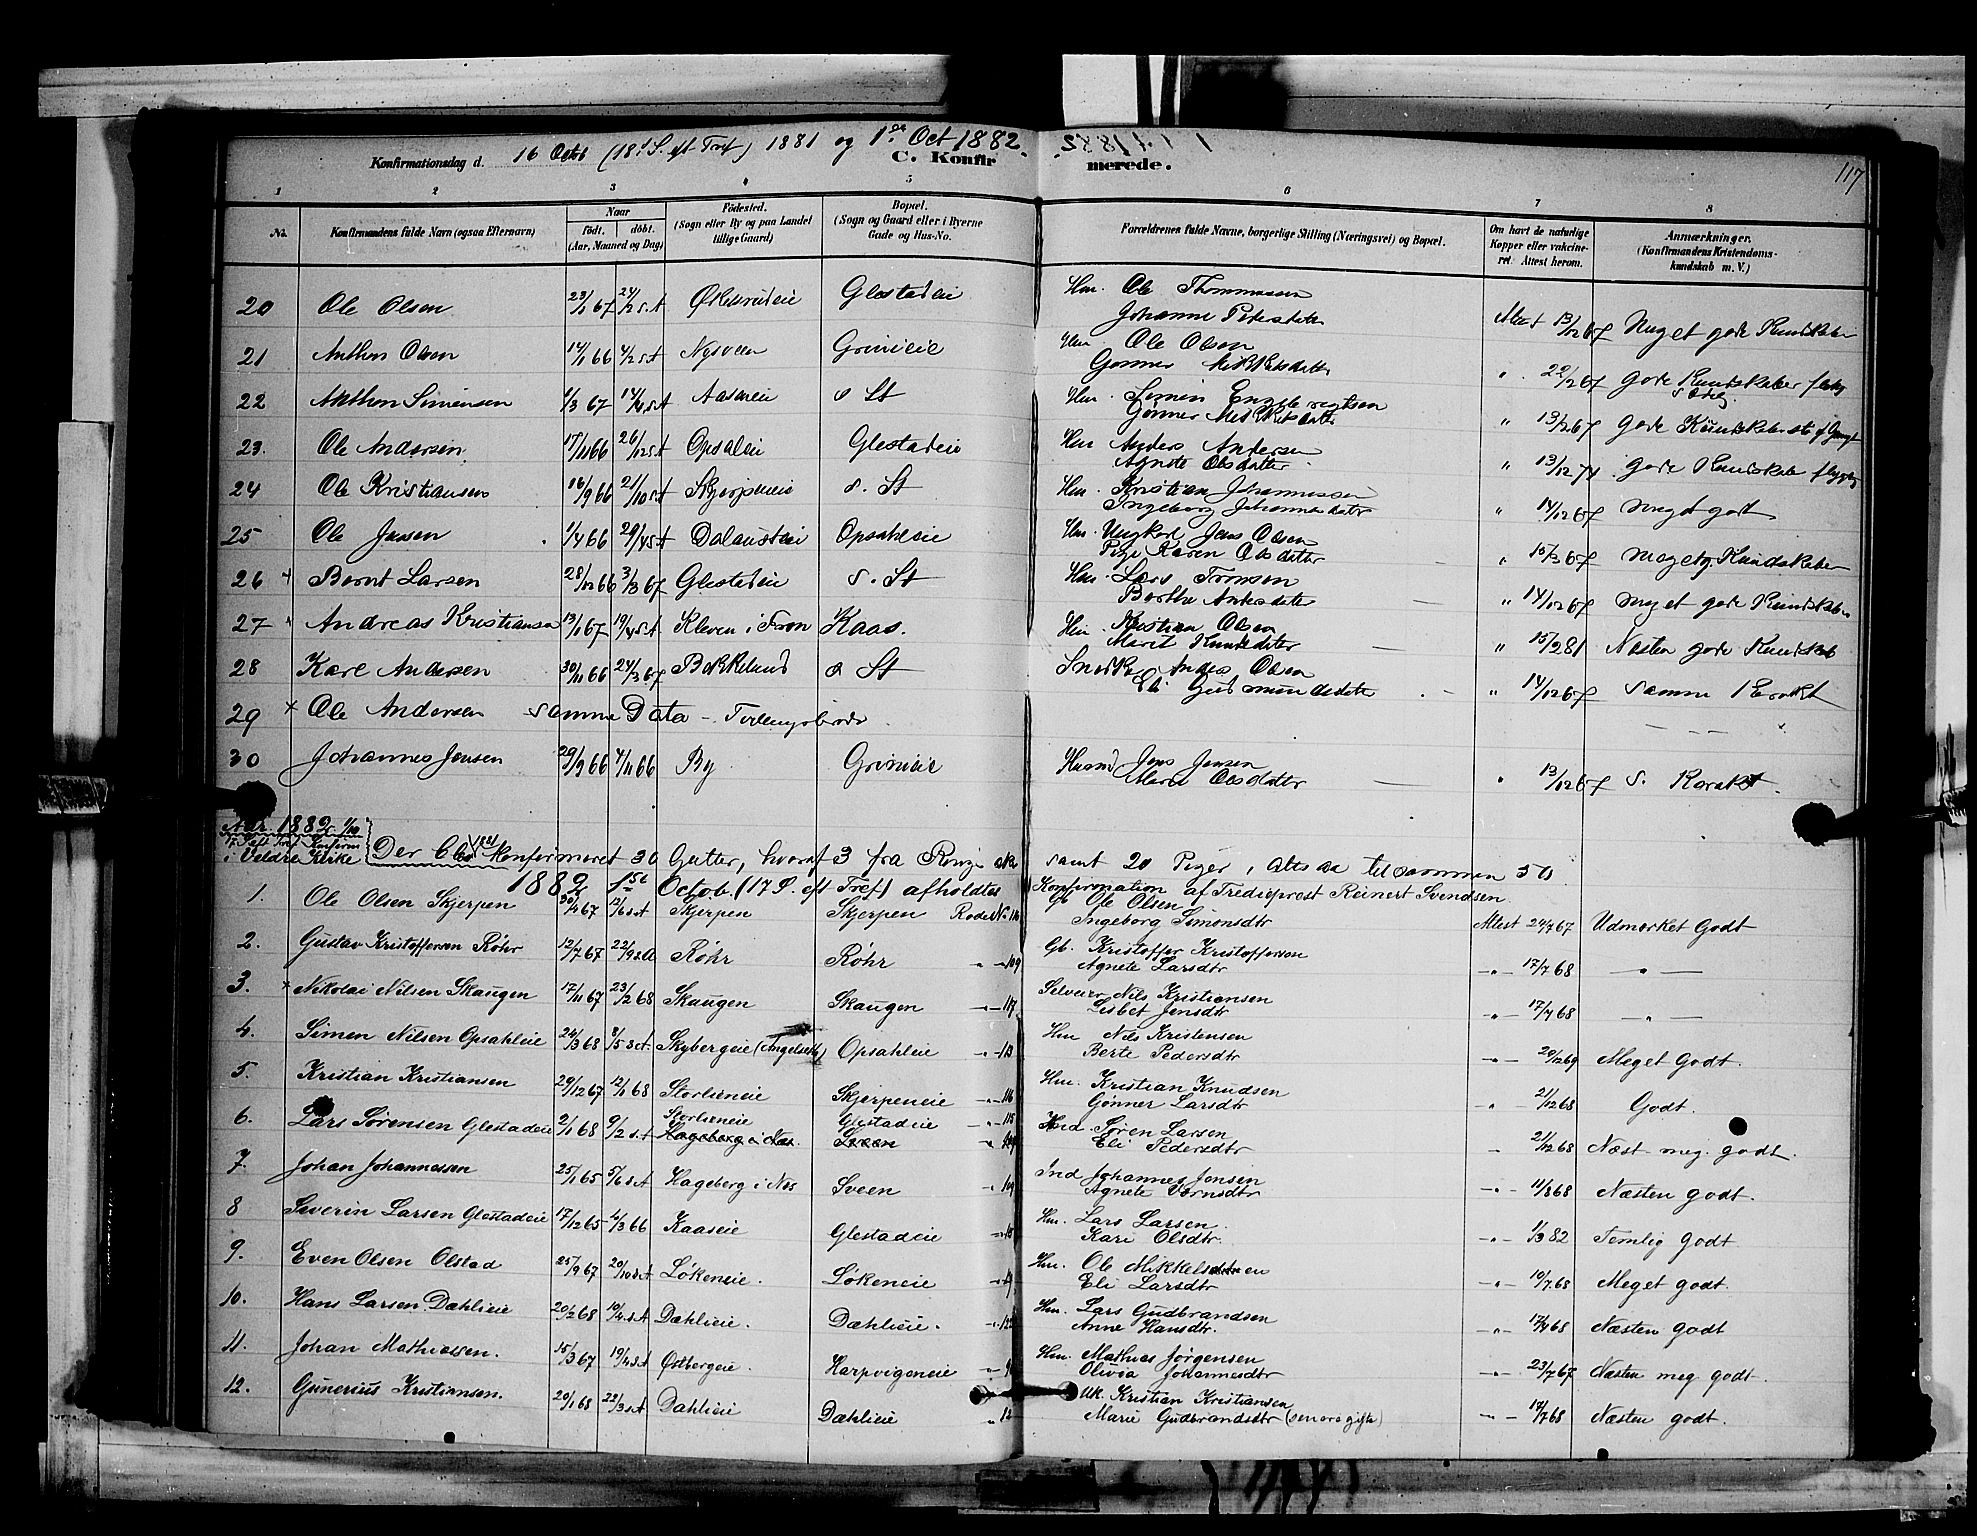 Konfirmationsdag d. 16 Octb (18d S. eft Tref) 1881 og 1ste Oct 1882.
C. Konfirmerede.
117
1 2 3 4 5 6 7 8
No.
Konfirmandens fulde Navn (ogsaa Efternavn)
Naar
født. døbt.
(Aar, Maaned og Dag)
Fødested.
(Sogn eller By og paa Landet
tillige Gaard)
Bopæl.
(Sogn og Gaard eller i Byerne
Gade og Hus-No.
Forældrenes fulde Navne, borgerlige Stilling (Næringsvei) og Bopæl.
Om havt de naturlige
Kopper eller vakcine-
ret. Attest herom.
Anmærkninger.
(Konfirmandens Kristendoms-
kundskab m. V.)
20 Ole Olsen 23/1 67 24/2 s.A Glestadeie Hm. Ole Thommassen
Johanne Pedersdatter Attest 13/12 67 Meget gode Kundskaber
21 Anthon Olsen 14/1 66 4/2 s.A Nysveen Grinieie Hm Ole Olsen
Gønner Mikkelsdatter " 22/12 67 gode Kundskaber
22 Anthon Simensen 4/3 67 14/4 s.A Aaseneie s St Hm. Simen Engebregtsen
Gønner Mikkelsdatter " 13/12 67 gode Kundskaber
23. Ole Andersen 17/11 66 26/12 s.A Opsaleie Glestadeie Hm Anders Andersen
Agnete Olsdatter " 13/12 71 gode Kundskaber
24 Ole Kristiansen 16/9 66 21/10 s.A Skjerpeneie s. St Hm. Kristian Johannessen
Ingeborg Johannesdatter " 14/12 67 meget godt
25 Ole Jensen 1/4 66 29/4 s.A Opsahleie Hm. Ungkarl Jens Olsen
Pige Karen Olsdatter " 15/3 67 meget g. Kundskaber
26 Bernt Larsen 28/12 66 3/3 67 Glestadeie s. St Hm. Lars Tronsen
Berthe Andersdatter " 14/12 67 meget gode Kundskaber
27 Andreas Kristiansen 13/1 67 19/4 s.A Kleven i Fron Kaas. Hm. Kristian Olsen
Marit Knudsdatter " 15/2 81 Næsten gode Kundskab
28 Karl Andersen 30/11 66 24/3 67 Bekkelund s St Snedker Anders Olsen
Eli Gudmundsdatter " 14/12 67 Samme
29 × Ole Andersen Samme Data - Tvillingbroder
30 Johannes Jensen 29/9 66 4/11 66 By Grinieie Husmd Jens Jensen
Marie Olsdatter " 13/12 67 s. Karakt.
Aar 1882 1/10
i Veldre Kirke
Der blev 1881 konfirmeret 30 Gutter, hvoraf 3 fra Rings samt 20 Piger, altsaa tilsammen 50
1882 1ste Octob. (17 S. eft Tref) afholdtes Konfirmation af Tredieprest Reinert Svendsen.
1. Ole Olsen Skjerpen 30/4 67 12/6 s.A Skjerpen Skjerpen Rode No 116 Gb Ole Olsen
Ingeborg Simonsdtr Attest 24/7 67 Udmerket Godt
2. Gustav Kristoffersen Røhr 12/7 67 22/9 s.A Røhr Røhr " - 109 Gb. Kristoffer Kristoffersen
Agnete Larsdtr -"- 17/7 68 - " -
3. × Nikolai Nilsen Skaugen 17/11 67 23/2 68 Skaugen Skaugen -"- 117 Selveier Nils Kristiansen
Lisbet Jensdtr -"- 17/7 68 - " -
4. Simen Nilsen Opsahleie 24/3 68 3/5 s.A. Skybergeie (Angelsek) Opsahleie -"- 113 Hm Nils Kristensen
Berte Pedersdtr -"- 20/12 69 Meget Godt.
5. Kristian Kristiansen 29/12 67 12/1 68 Storlieneie Skjerpeneie -"- 116 Hm. Kristian Knudsen
Gønner Larsdtr -"- 21/12 68 Godt.
6. Lars Sørensen Glestadeie 2/1 68 9/2 s.A Storlieneie Glestadeie -"- 115 Hmd. Søren Larsen
Hageberg i Næs. Sveen Eli Pedersdtr - 21/12 68 Næst meg. godt.
7. Johan Johannessen 25/1 65 5/6 s.A Hageberg i Næs Sveen Ind Johannes Jensen
Agnete -"- 11/8 68 Næsten godt.
8 Severin Larsen Glestadeie 17/12 65 4/3 66 Kaaseie Glestadeie Hm. Lars Larsen.
Kari Olsdtr. -"- 1/3 82 Temlig godt
9. Even Olsen Olstad 25/9 67 20/10 s.A Løkeneie. Løkeneie Hm. Ole Mikkelsen
Eli Larsdtr -"- 10/7 68 Meget godt.
10. Hans Larsen Dæhlieie 20/2 68 10/4 s.A Dæhlieie. Dæhlieie. Hm. Lars Gudbrandsen
Anne Hansdtr. -"- 17/7 68 Næsten godt
11. Johan Mathiassen. 15/3 67 19/4 s.A Østbergeie. Harpvigeneie Hm. Mathias Jørgensen
Olivia Johannesdtr -"- 23/7 67 Næsten meg godt.
12. Gunerius Kristiansen. 20/1 68 22/3 s.A Dæhlieie Dæhlieie Uk. Kristian Kristiansen
Marie Gudbrandsdtr (senere gifte) -"- 17/7 68 Næsten godt.